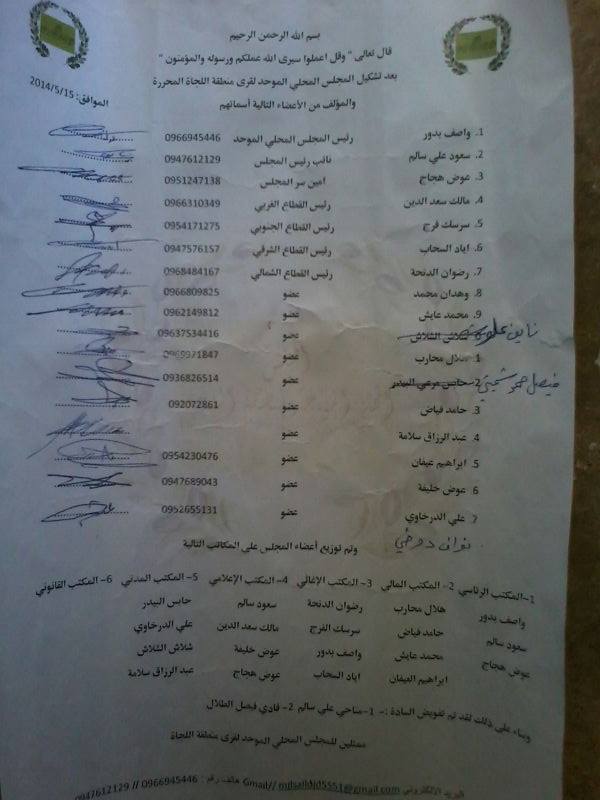 بسم الله الرحمن الرحيم
قال تعالى " وقل اعملوا سيرى الله عملكم ورسوله والمؤمنون "
بعد تشكيل المجلس المحلي الموحد لقرى منطقة اللجاة المحررة
الموافق: 2014/5/15
والمؤلف من الأعضاء التالية أسمائهم
1. واصف بدور رئيس المجلس المحلي الموحد 0966945446
2. سعود علي سالم نائب رئيس المجلس 0947612129
3. عوض هجاج امين سر المجلس 0951247138
4. مالك سعد الدين رئيس القطاع الغربي 0966310349
5. سرسك فرج رئيس القطاع الجنوبي 0954171275
6. اياد السحاب رئيس القطاع الشرقي 0947576157
7. رضوان الدنحة رئيس القطاع الشمالي 0968484167
8. وهدان محمد عضو 0966809825
9. محمد عايش عضو 0962149812
شلاش الشلاش عضو 09637534416
1. هلال محارب عضو 0969971847
2. حابس مرعي البيدر عضو 0936826514
فيصل
3. حامد فياض عضو 092072861
4. عبد الرزاق سلامة عضو
5. ابراهيم عيفان عضو 0954230476
6. عوض خليفة عضو 0947689043
7. علي الدرخاوي عضو 0952655131
وتم توزيع أعضاء المجلس على المكاتب التالية
1- المكتب الرئاسي 2- المكتب المالي 3- المكتب الإغاثي 4- المكتب الإعلامي 5- المكتب المدني 6- المكتب القانوني
واصف بدور هلال محارب رضوان الدنحة سعود سالم حابس البيدر
سعود سالم حامد فياض سرسك الفرج مالك سعد الدين علي الدرخاوي
عوض هجاج محمد عايش واصف بدور عوض خليفة شلاش الشلاش
ابراهيم العيفان اياد السحاب عوض هجاج عبد الرزاق سلامة
وبناء على ذلك لقد تم تفويض السادة :- 1- مناحي علي سالم 2- فادي فيصل الطلال
ممثلين للمجلس المحلي الموحد لقرى منطقة اللجاة
البريد الالكتروني Gmail// هاتف رقم : 0966945446 // 0947612129